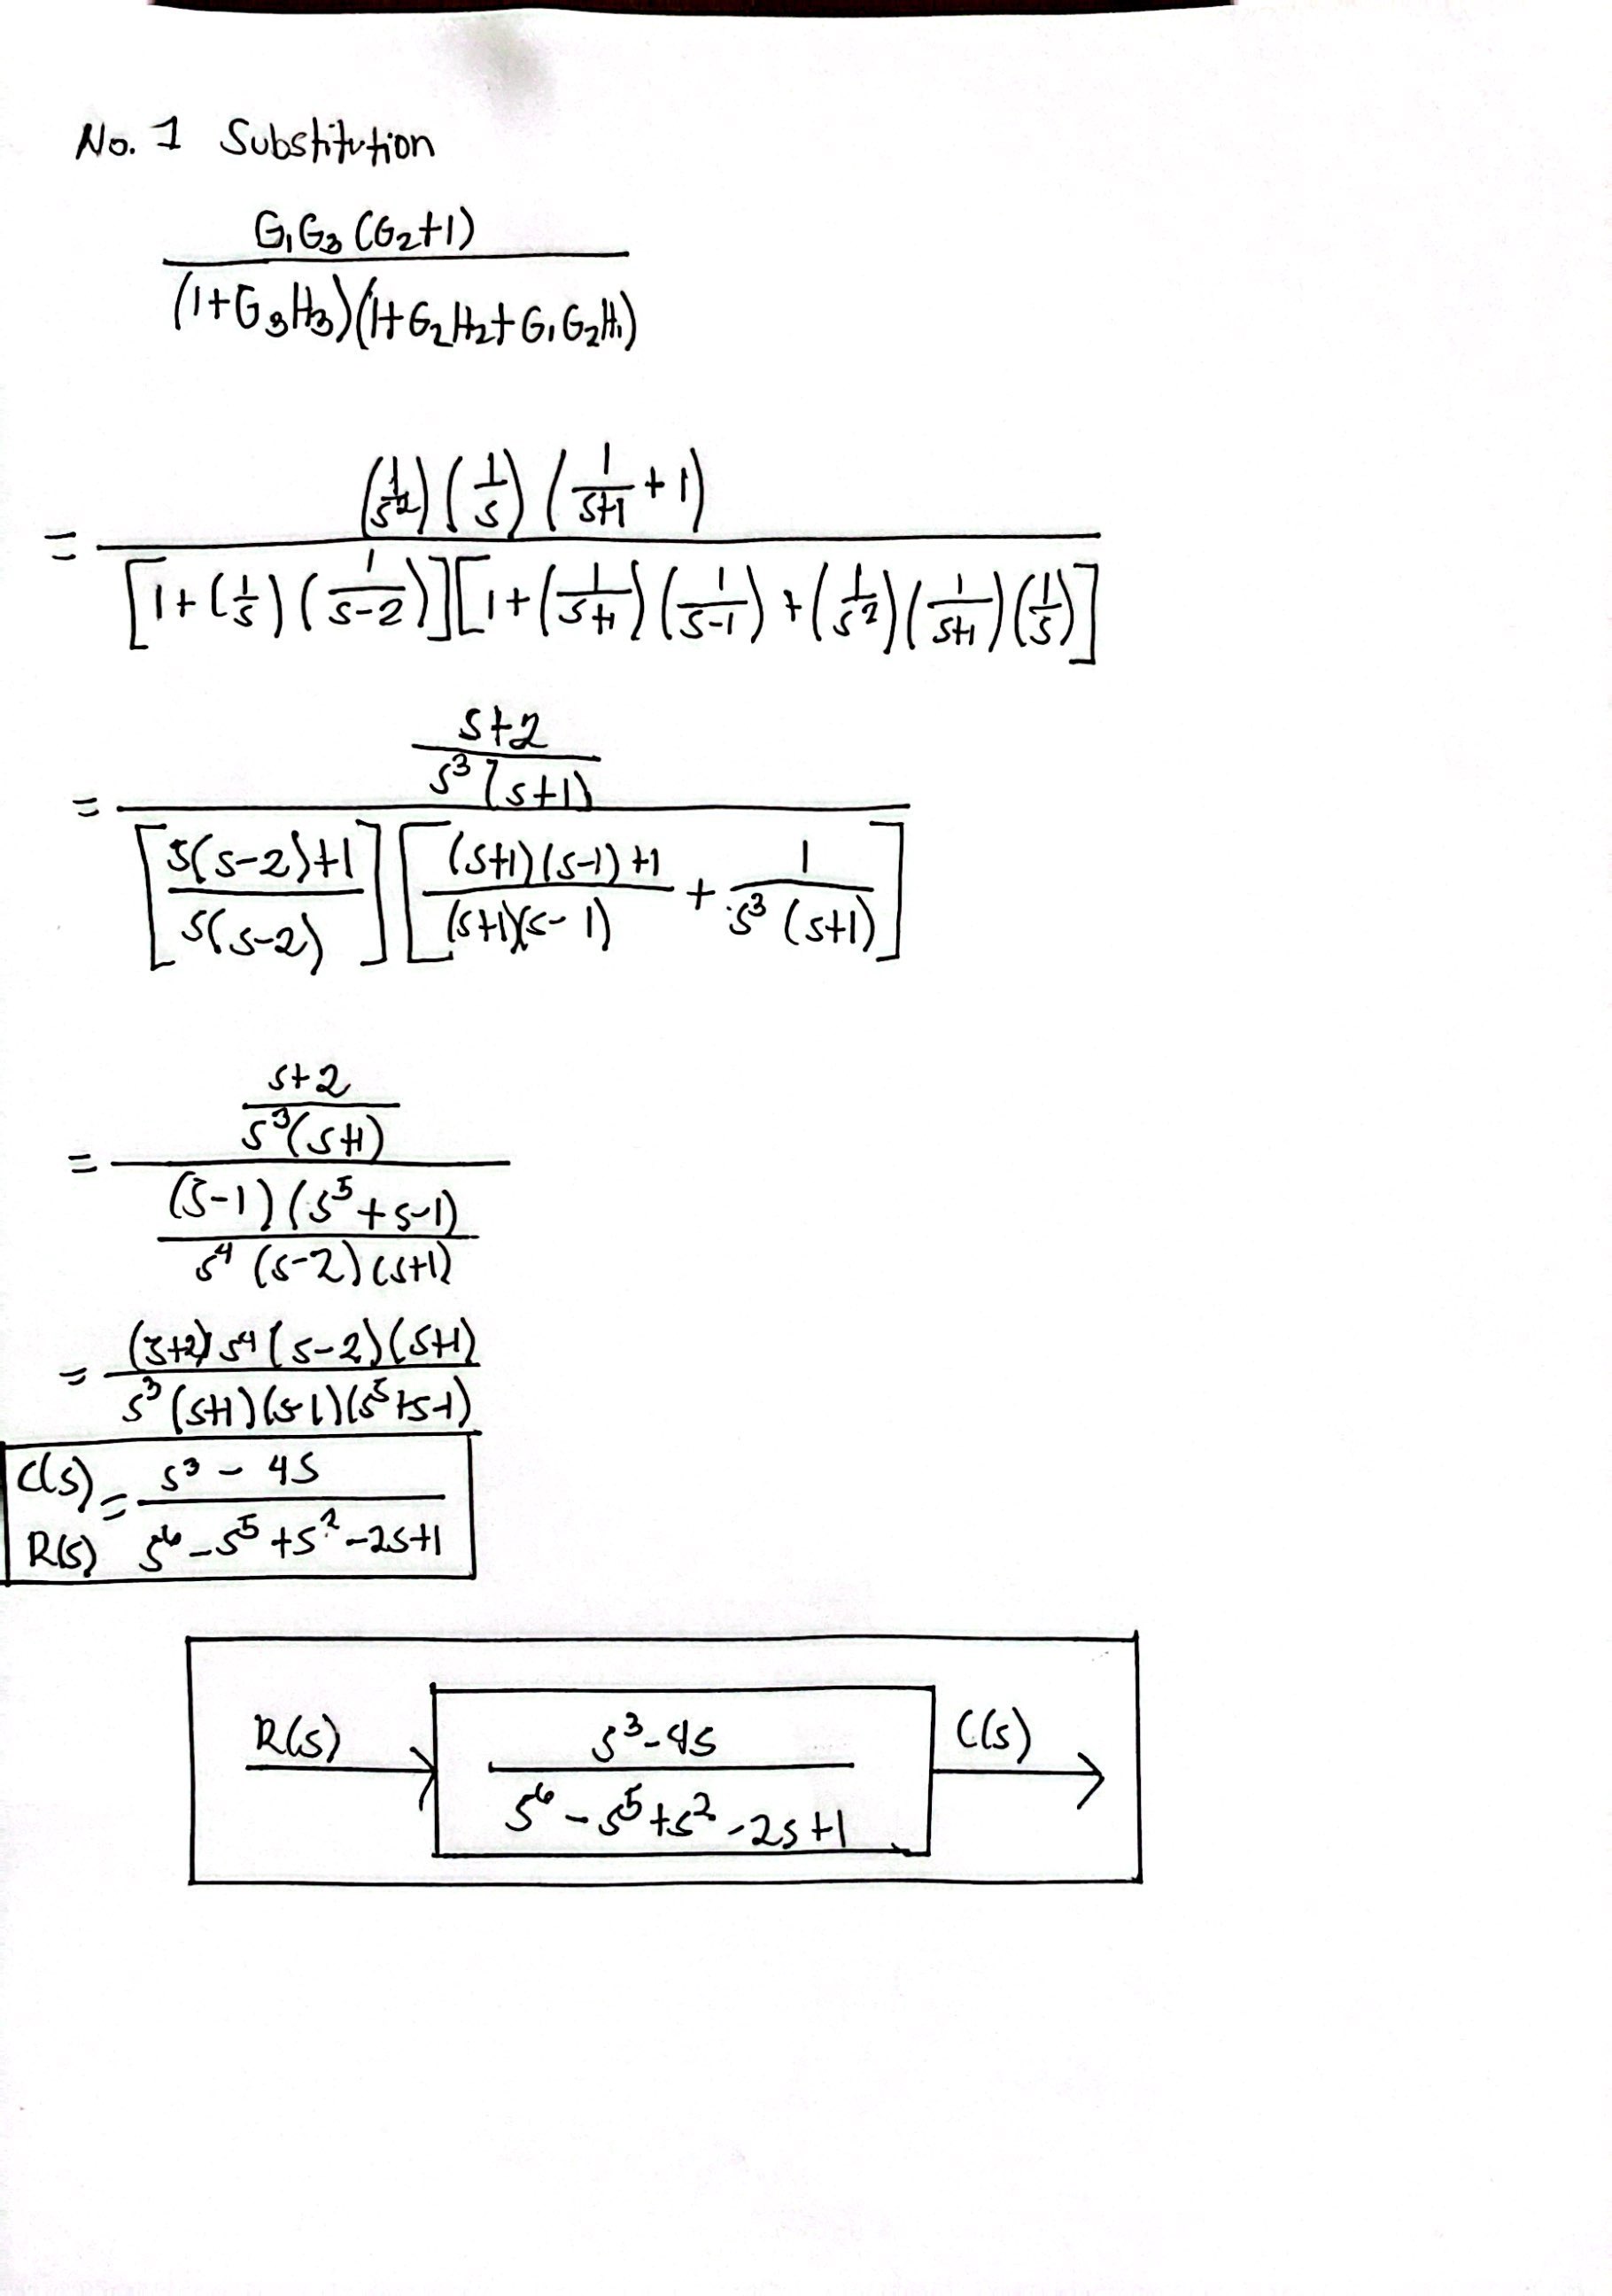 No. 1 Substitution
G₁G₃(G₂+1)
(1+G₃H₃)(1+G₂H₂+G₁G₂H₁)
= (1/s²)(1/s)(1/(s+1) + 1)
[1+(1/s)(1/(s-2))][1+(1/(s+1))(1/(s-1))+(1/s²)(1/(s+1))(1/s)]
s+2
s³(s+1)
=
[(s(s-2)+1)/(s(s-2))][((s+1)(s-1)+1)/((s+1)(s-1)) + 1/(s³(s+1))]
s+2
s³(s+1)
=
(s-1)(s⁵+s-1)
s⁴(s-2)(s+1)
= (s+2)s⁴(s-2)(s+1)
s³(s+1)(s-1)(s⁵+s-1)
C(s)/R(s) = (s³-4s)/(s⁶-s⁵+s²-2s+1)
R(s) s³-4s C(s)
s⁶-s⁵+s²-2s+1